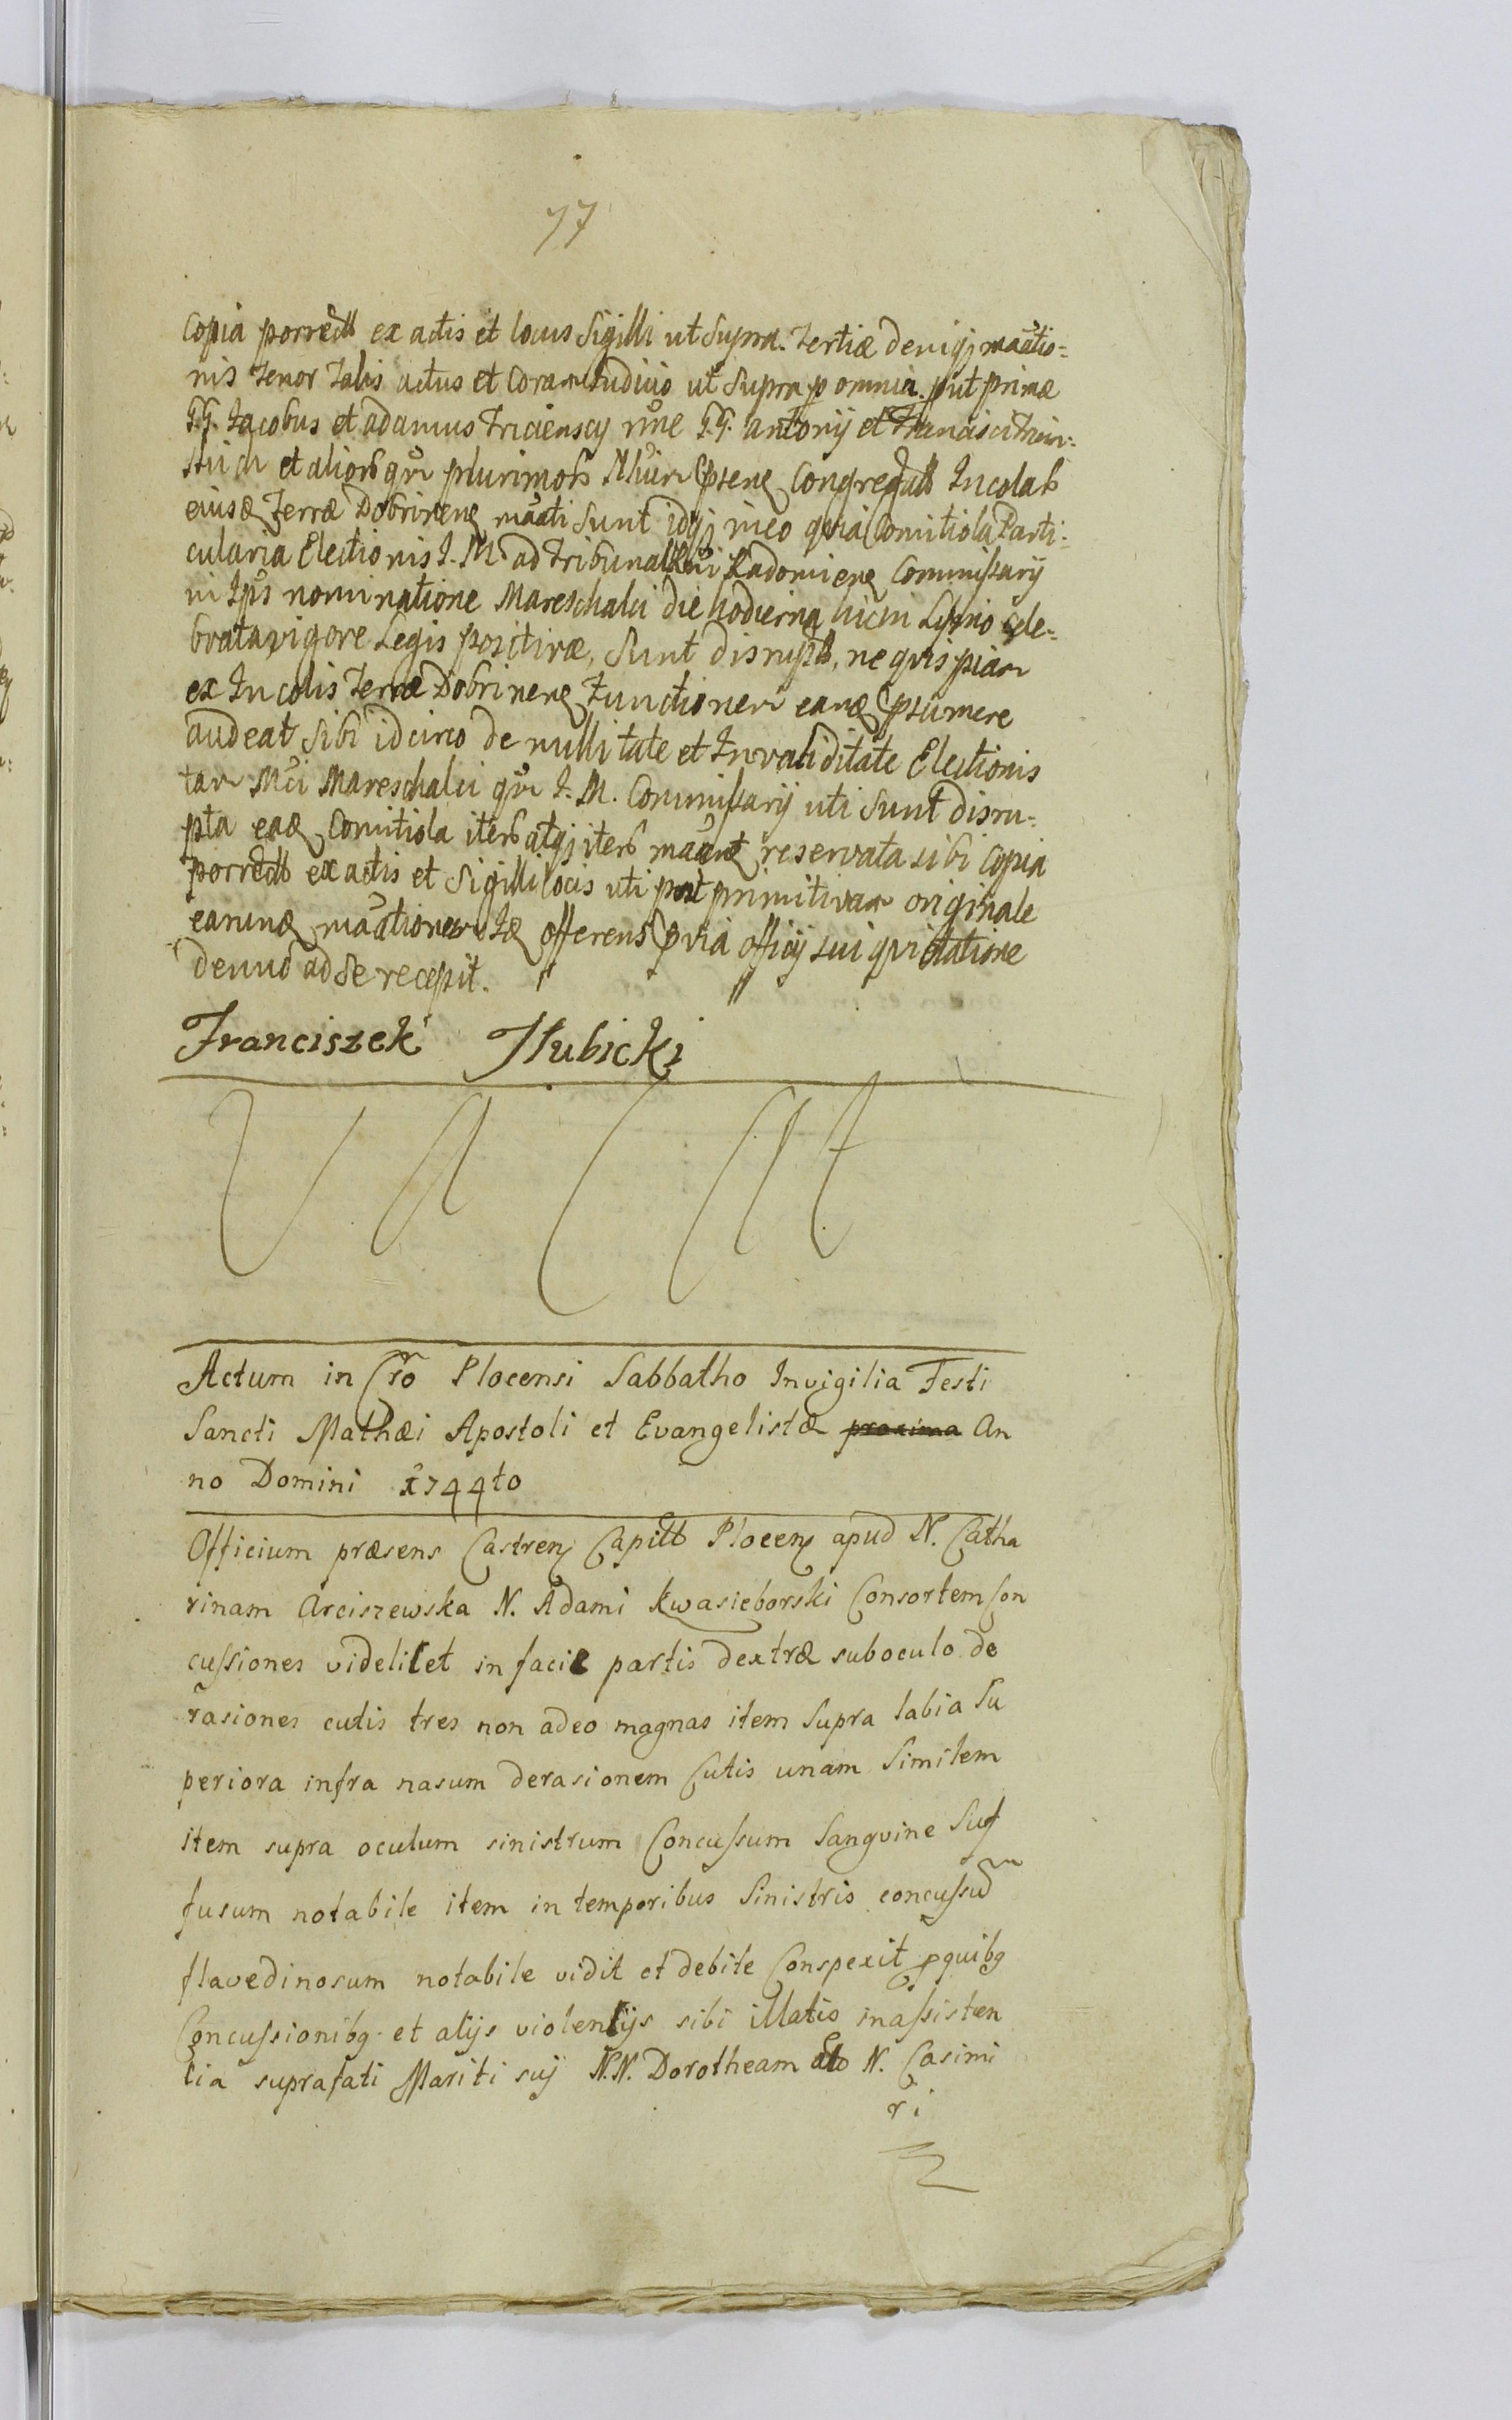 77
Copia porrectt ex actis et locus Sigilli ut Supra. Tertiæ deniqj
nis Tenor talis actus et Coram Judicio ut Supra p omnia put primæ
G.G. Jacobus et adamus G.G. antonij et Francisci
et aliorb plurimorb Congregatt Incolab
eiusq Terræ Dobrinenq sunt idqj in eo quia Comitiola Parti-
cularia Electionis J. M. ad Tribunal Radomienq Commissarij
in nominatione Mareschalci die hodierna hic in Lipno cele-
brata, vigore Legis positivæ, sunt disruptb, ne quispiam
ex Incolis Terræ Dobrinenq Functionem eanq psumere
audeat sibi idcirco de nullitate et Invaliditate Electionis
tam Mareschalci qm J. M. Commissarij uti sunt disru-
pta eaq Comitiola iterb atqj iterb reservata sibi Copia
porrectt ex actis et Sigilli locis uti put primitivam originale
earunq offerens pvia officij sui quietatione
denuo ad se recepit.
Franciszek Hubicki
VACAT
Actum in Cro Plocensi Sabbatho Invigilia Festi
Sancti Mathæi Apostoli et Evangelistæ proxima An
no Domini 1744to
Officium præsens Castren Capitt Plocen apud N. Catha
rinam Arciszewska N. Adami Kwasieborski Consortem Con
cussiones videlicet in facie partis dextræ suboculo de
rasiones cutis tres non adeo magnas item supra labia su
periora infra nasum derasionem Cutis unam Similem
item supra oculum sinistrum Concussum Sanguine suf
fusum notabile item in temporibus Sinistris concussu
flavedinosum notabile vidit et debite Conspexit pquibg
Concussionibg et alijs violentijs sibi illatis inassisten
tia suprafati Mariti sui N.N. Dorotheam N. Casimi
ri